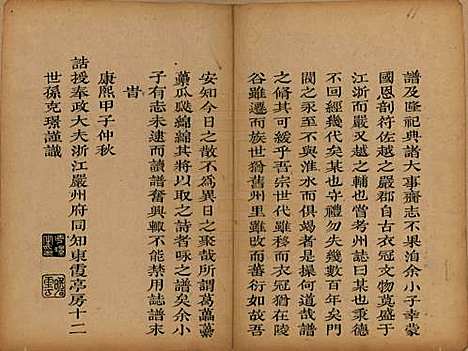 譜及隆祀典諸大事齋志不果泊余小子幸蒙
國恩剖符佐越之嚴郡自古衣冠文物莫盛于
江浙而嚴尤越之輔也嘗考州誌曰某也秉德
不回經幾代矣某也守禮勿失幾數百年矣門
閥之永至不與淮水而俱竭者是操何道哉譜
之脩其可緩乎吾宗世代雖移而衣冠猶在陵
谷雖遷而族世猶舊州里雖改而蕃衍如故吾
安知今日之散不為異日之聚哉所謂葛藟纍
藟瓜瓞綿綿其將以取之詩者咏之譜矣余小
子有志未逮而讀譜奮興輒不能禁用誌譜末
旹
康熙甲子仲秋
誥授奉政大夫浙江嚴州府同知東霞亭房十二
世孫克璟謹識